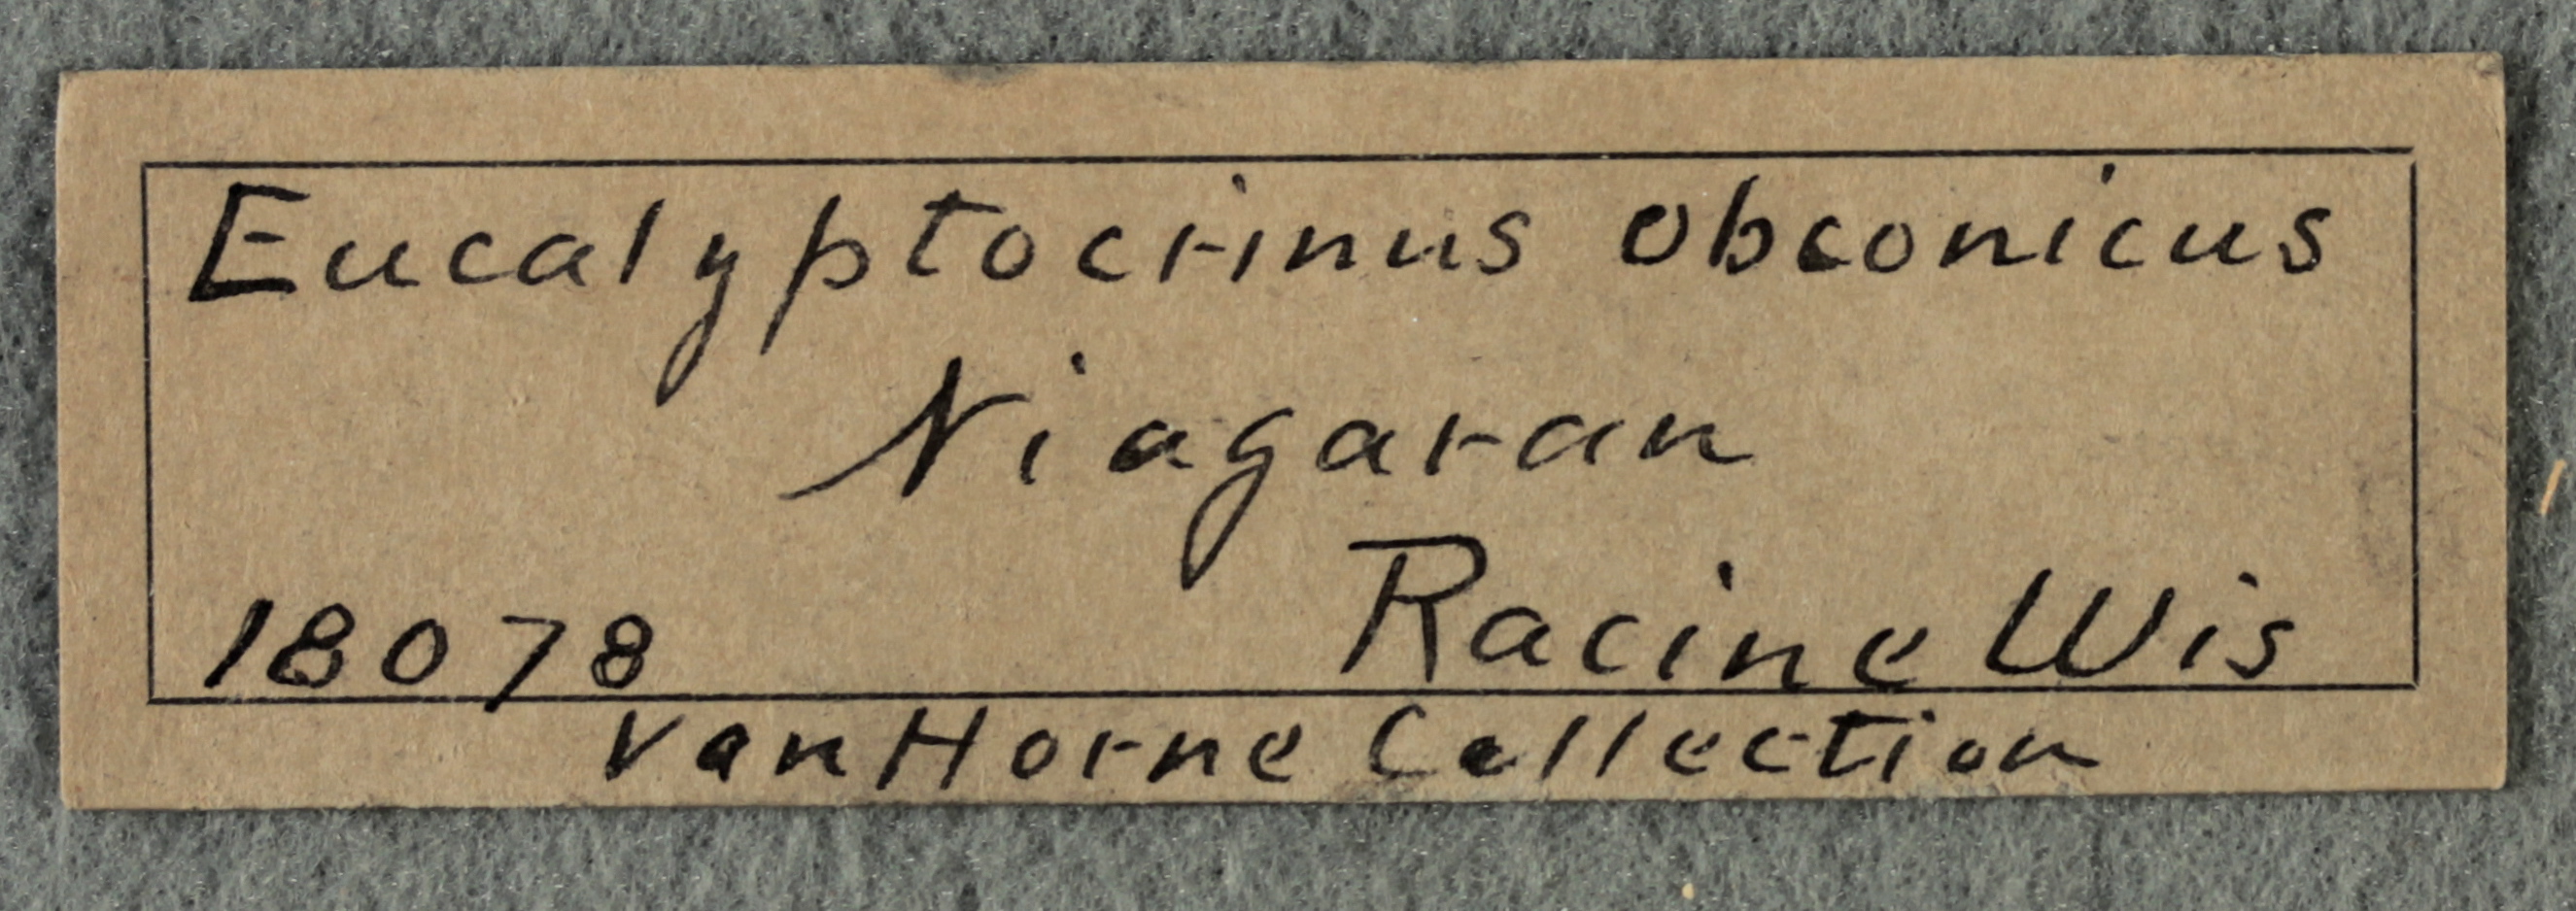 Eucalyptocrinus obconicus
Niagaran
18078 Racine Wis
Van Horne Collection